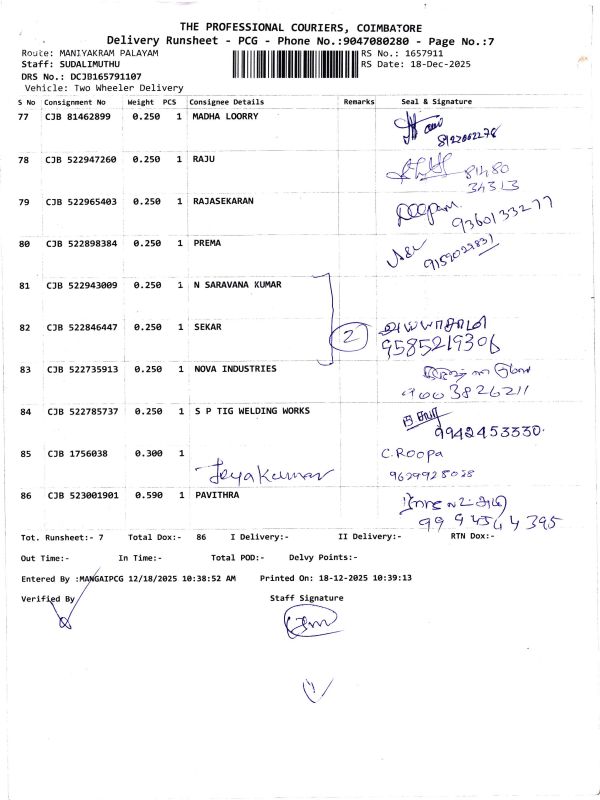 THE PROFESSIONAL COURIERS, COIMBATORE
Delivery Runsheet - PCG - Phone No.:9047080280 - Page No.:7
Route: MANIYAKRAM PALAYAM RS No.: 1657911
Staff: SUDALIMUTHU RS Date: 18-Dec-2025
DRS No.: DCJB165791107
Vehicle: Two Wheeler Delivery
S No Consignment No Weight PCS Consignee Details Remarks Seal & Signature
77 CJB 81462899 0.250 1 MADHA LOORRY
78 CJB 522947260 0.250 1 RAJU 81480
34313
79 CJB 522965403 0.250 1 RAJASEKARAN Deepam.
9360133277
80 CJB 522898384 0.250 1 PREMA
9159027831
81 CJB 522943009 0.250 1 N SARAVANA KUMAR
82 CJB 522846447 0.250 1 SEKAR 2 அய்யாசாமி
9585219306
83 CJB 522735913 0.250 1 NOVA INDUSTRIES
9003826211
84 CJB 522785737 0.250 1 S P TIG WELDING WORKS
9942453330.
85 CJB 1756038 0.300 1 C.Roopa
Jeyakumar 9629928028
86 CJB 523001901 0.590 1 PAVITHRA
9994544395
Tot. Runsheet:- 7 Total Dox:- 86 I Delivery:- II Delivery:- RTN Dox:-
Out Time:- In Time:- Total POD:- Delvy Points:-
Entered By :MANGAIPCG 12/18/2025 10:38:52 AM Printed On: 18-12-2025 10:39:13
Verified By Staff Signature